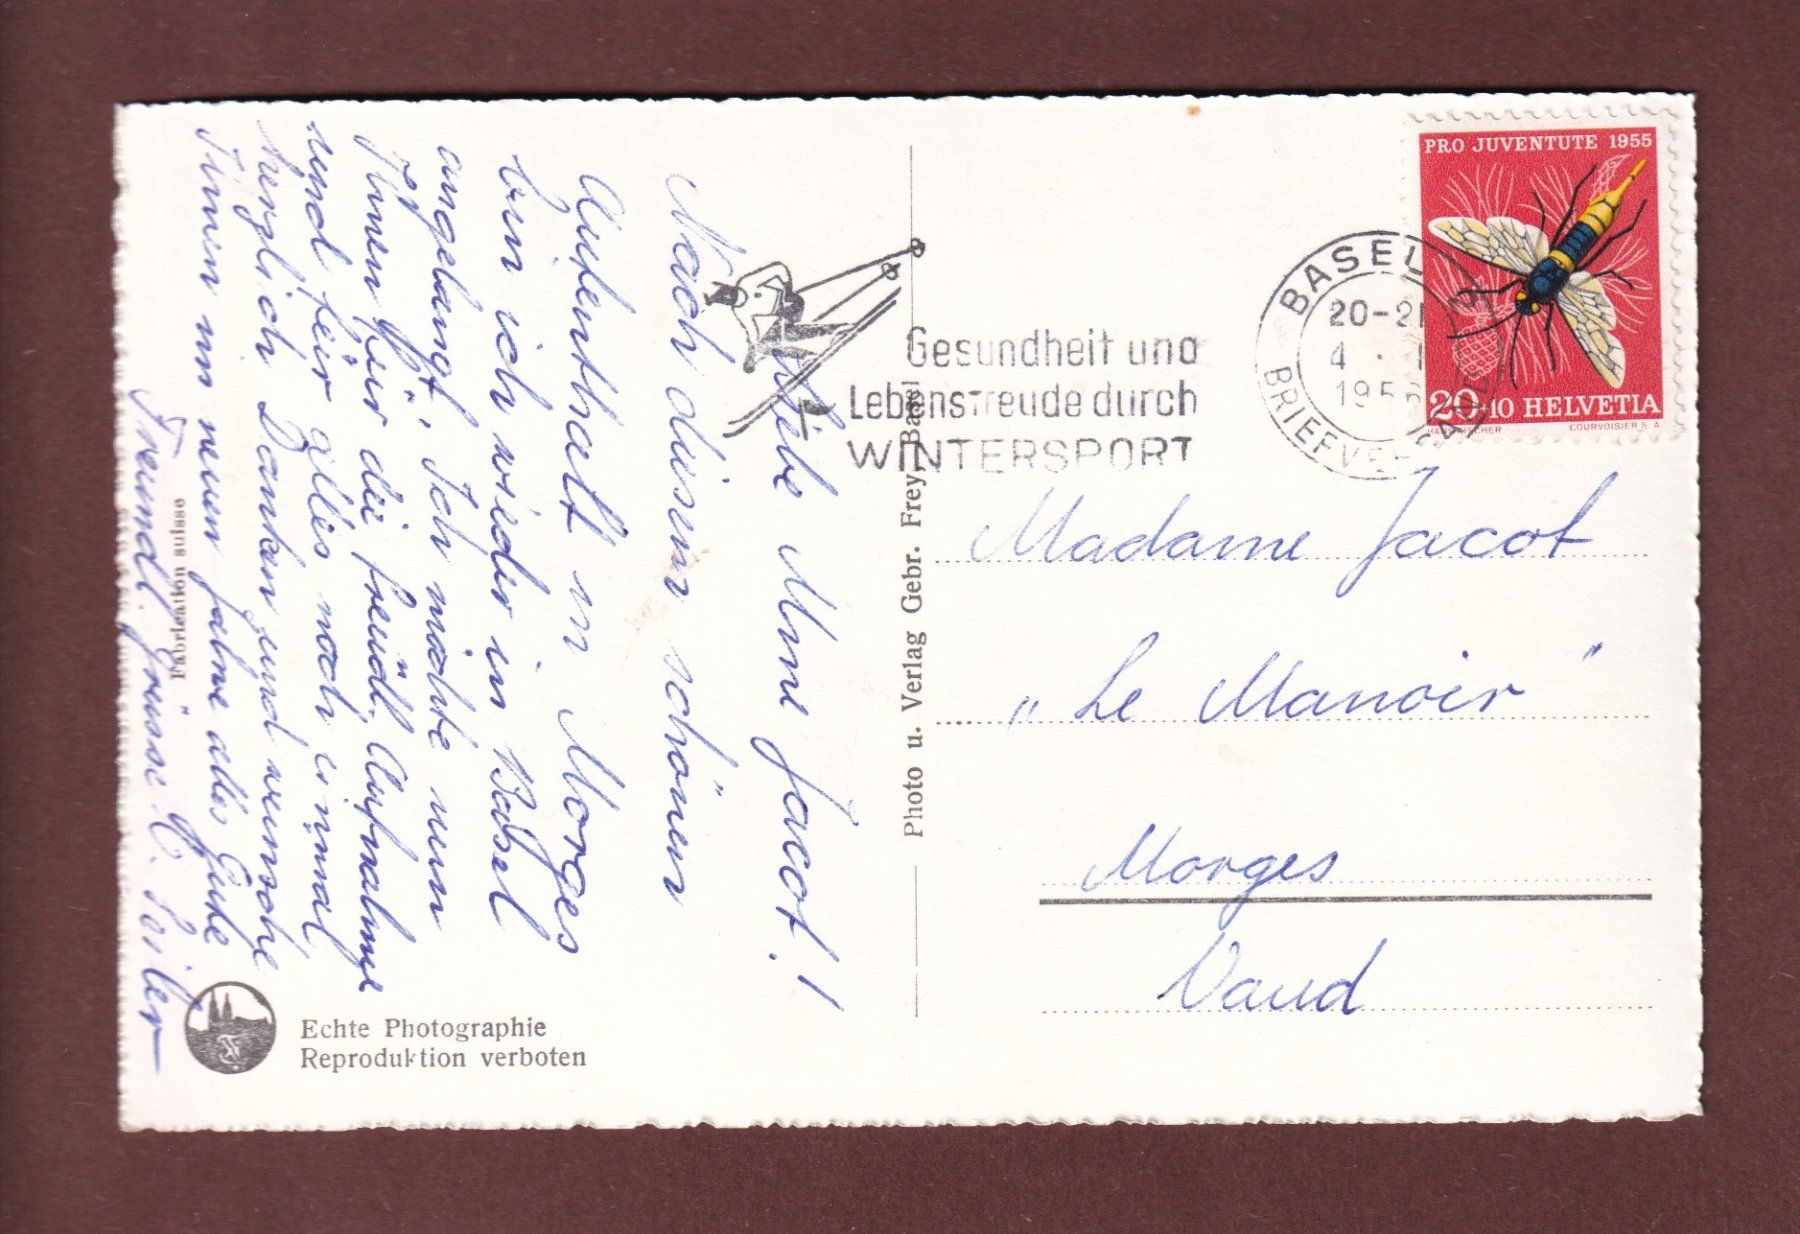 Liebe Mme Jacot!
Nach diesem schönen
Aufenthalt in Morges
bin ich wieder in Basel
angelangt. Ich möchte nun
Ihnen für die freudl. Aufnahme
und für alles noch einmal
herzlich Danken und wünsche
Ihnen im neuen Jahre alles Gute
Freundl. Grüsse
Fabrication suisse
Echte Photographie
Reproduktion verboten
Photo u. Verlag Gebr. Frey, Basel
Gesundheit und
Lebensfreude durch
WINTERSPORT
BASEL 2
20-21
4 · I
1956
BRIEFVERSAND
PRO JUVENTUTE 1955
20+10 HELVETIA
COURVOISIER S.A.
Madame Jacot
„Le Manoir"
Morges
Vaud